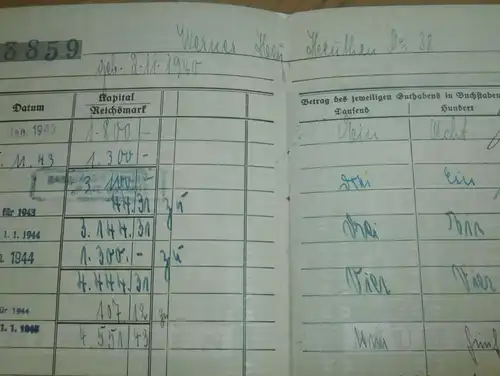 8859 Werner
geb. 2.11.1940
Datum Kapital Reichsmark Betrag des jeweiligen Guthabens in Buchstaben
Tausend Hundert
Jan. 1943 1.800/- Acht
11.43 1.300/-
3.100/- Drei Ein
für 1943 44/31 zu
1.1.1944 3.144/31 Drei Ein
1944 1.300.- zu
4.444/31 Vier Vier
für 1944 107/12 zu
1.1. 4.551/43 Vier Fünf